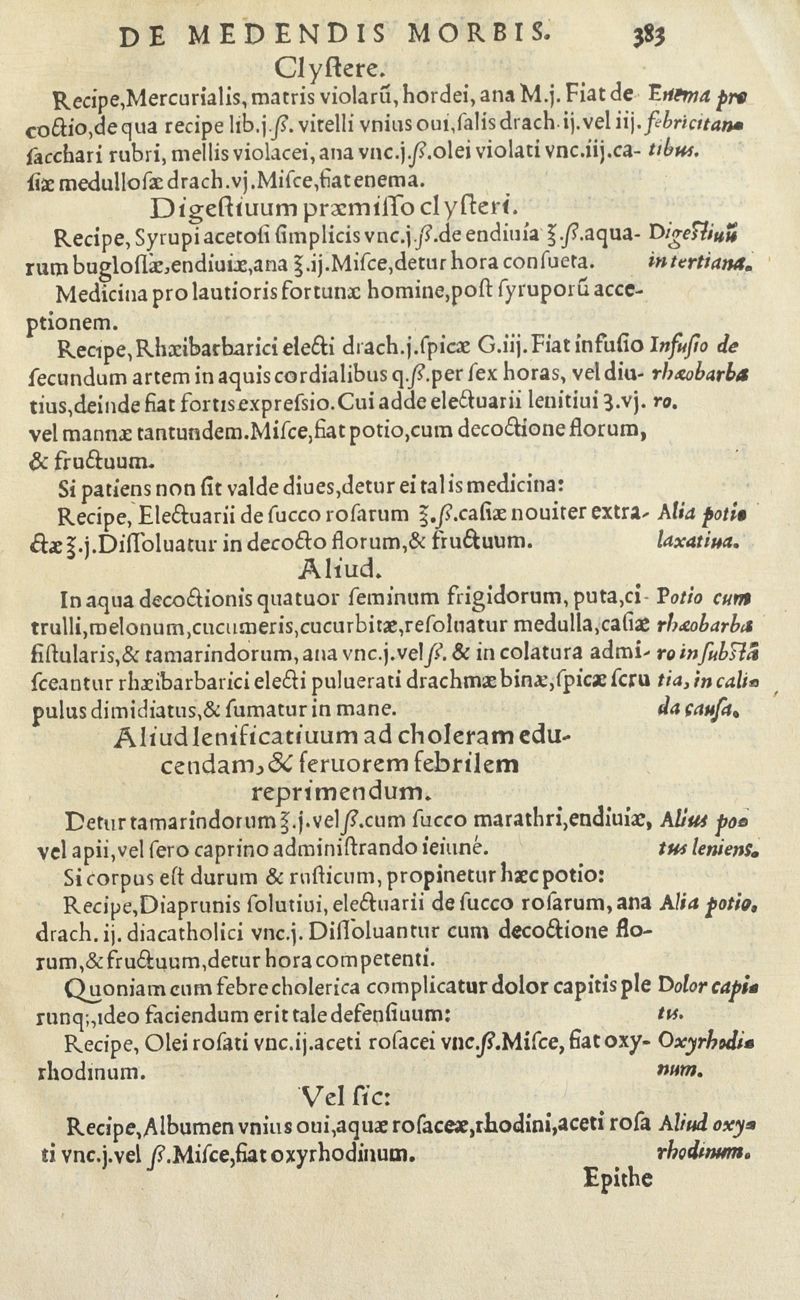 DE MEDENDIS MORBIS. 383
Clyſtere.
Recipe,Mercurialis, matris violarū, hordei, ana M.j. Fiat de Enema pro
coctio,de qua recipe lib.j.ß. vitelli vnius oui,ſalis drach.ij.vel iij. febricitan-
ſacchari rubri, mellis violacei, ana vnc.j.ß.olei violati vnc.iij.ca- tibus.
ſiæ medulloſæ drach.vj.Miſce,fiat enema.
Digeſtiuum præmiſſo clyſteri.
Recipe, Syrupi acetoſi ſimplicis vnc.j.ß.de endiuia ℥.ß.aqua- Digeſtiuū
rum bugloſſæ,endiuiæ,ana ℥.ij.Miſce,detur hora conſueta. in tertiana.
Medicina pro lautioris fortunæ homine,poſt ſyruporū acce-
ptionem.
Recipe,Rhæibarbarici electi drach.j.ſpicæ G.iij.Fiat infuſio Infuſio de
ſecundum artem in aquis cordialibus q.ß.per ſex horas, vel diu- rhæobarba
tius,deinde fiat fortis expreſsio.Cui adde electuarii lenitiui ʒ.vj. ro.
vel mannæ tantundem.Miſce,fiat potio,cum decoctione florum,
& fructuum.
Si patiens non ſit valde diues,detur ei talis medicina:
Recipe, Electuarii de ſucco roſarum ℥.ß.caſiæ nouiter extra- Alia potio
ctæ ℥.j.Diſſoluatur in decocto florum,& fructuum. laxatiua.
Aliud.
In aqua decoctionis quatuor ſeminum frigidorum, puta,ci- Potio cum
trulli,melonum,cucumeris,cucurbitæ,reſoluatur medulla,caſiæ rhæobarba
fiſtularis,& tamarindorum, ana vnc.j.vel ß. & in colatura admi- ro in ſubſtā
ſceantur rhæibarbarici electi puluerati drachmæ binæ,ſpicæ ſcru tia, in cali-
pulus dimidiatus,& ſumatur in mane. da cauſa.
Aliud lenificatiuum ad choleram edu-
cendam,& feruorem febrilem
reprimendum.
Detur tamarindorum ℥.j.vel ß.cum ſucco marathri,endiuiæ, Alius po-
vel apii,vel ſero caprino adminiſtrando ieiunè. tus leniens.
Si corpus eſt durum & ruſticum, propinetur hæc potio:
Recipe,Diaprunis ſolutiui, electuarii de ſucco roſarum, ana Alia potio,
drach. ij. diacatholici vnc.j. Diſſoluantur cum decoctione flo-
rum,& fructuum,detur hora competenti.
Quoniam cum febre cholerica complicatur dolor capitis ple Dolor capi-
runq;,ideo faciendum erit tale defenſiuum: tis.
Recipe, Olei roſati vnc.ij.aceti roſacei vnc.ß.Miſce, fiat oxy- Oxyrhodi-
rhodinum. num.
Vel ſic:
Recipe,Albumen vnius oui,aquæ roſaceæ,rhodini,aceti roſa Aliud oxy-
ti vnc.j.vel ß.Miſce,fiat oxyrhodinum. rhodinum.
Epithe